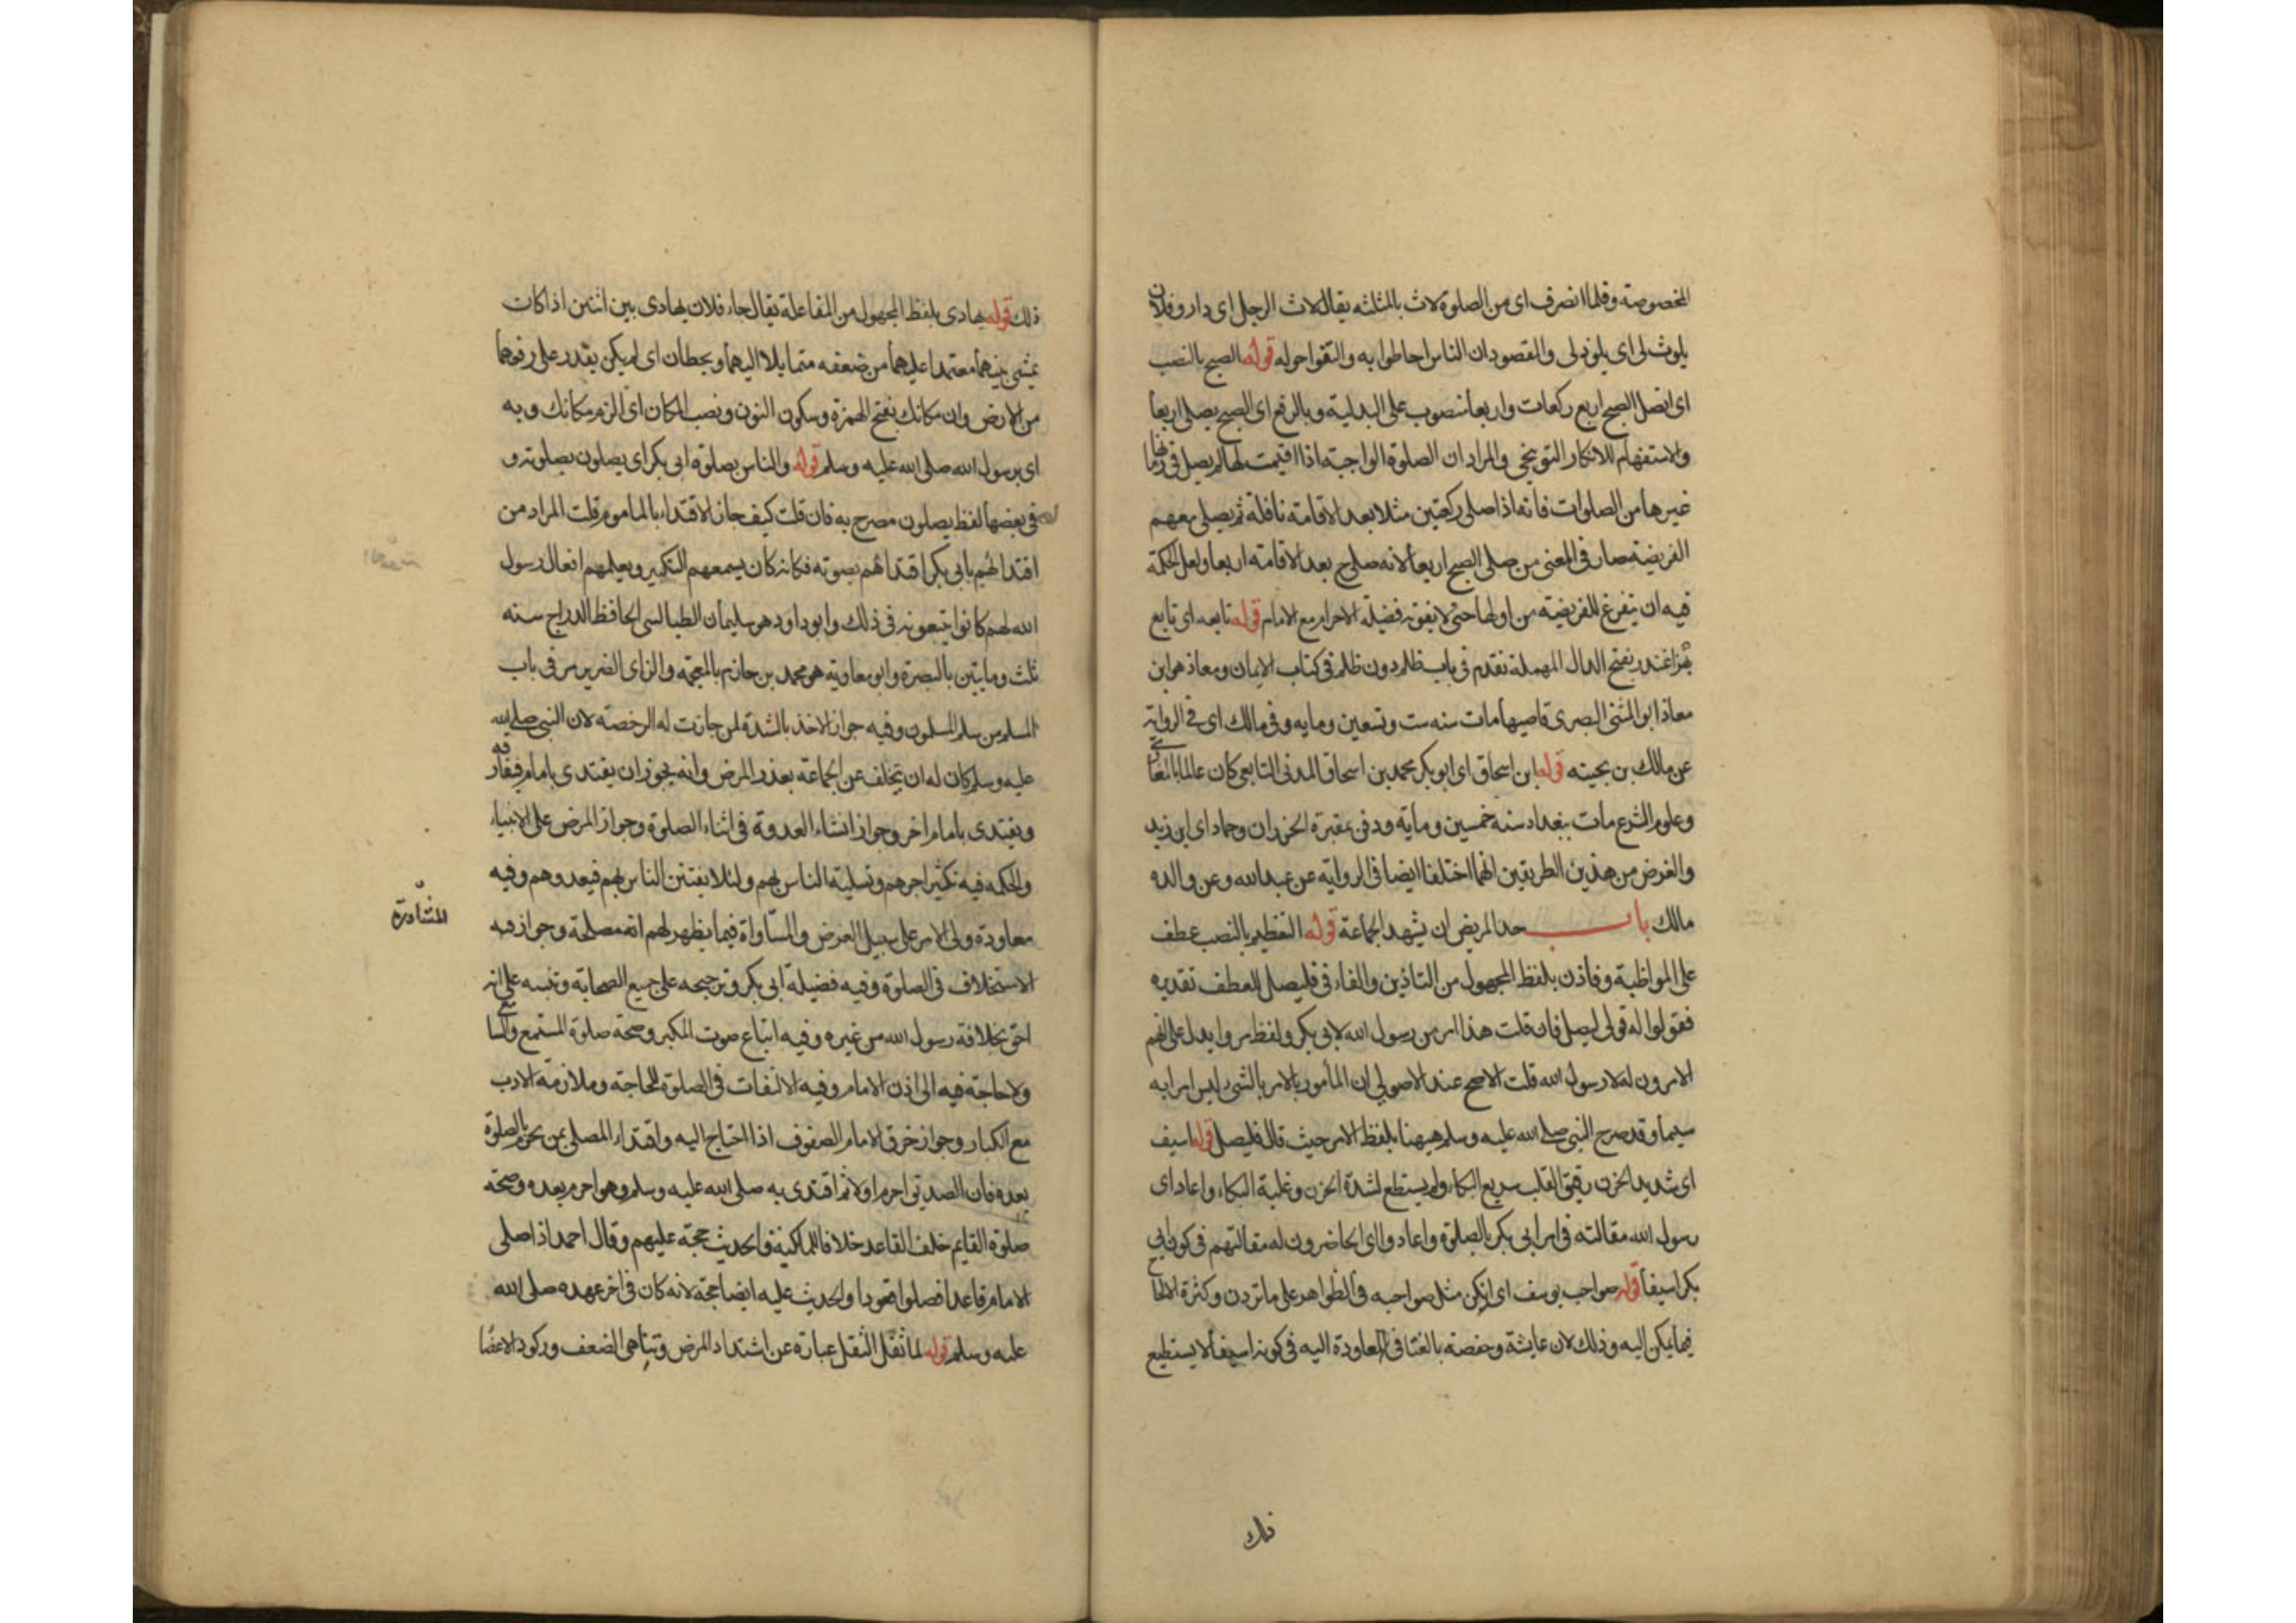 المخصوصة و فلما انصرف اى من الصلوة لاث بالمثلثة يقال لاث الرجل اى دار وفلان
يلوث لى اى يلوذ لى والمقصود ان الناس احاطوا به والتفوا حوله قوله الصبح بالنصب
اى اتصلى الصبح اربع ركعات واربعا منصوب على البدلية وبالرفع اى الصبح يصلى اربعا
والاستفهام للانكار التوبيخى والمراد ان الصلوة الواجبة اذا اقيمت لها لم يصل فى زمانها
غيرها من الصلوات فانه اذا صلى ركعتين مثلا بعد الاقامة نافلة ثم يصلى معهم
الفريضة صار فى المعنى من صلى الصبح اربعا لانه صلى بعد الاقامة اربعا ولعل الحكمة
فيه ان يتفرغ للفريضة من اولها حتى لا يفوته فضيلة الاحرام مع الامام قوله تابعه اى تابع
بهزا غندر بفتح الدال المهملة تقدم فى باب ظلم دون ظلم فى كتاب الايمان ومعاذ هو ابن
معاذ ابو المثنى البصرى قاضيها مات سنه ست وتسعين ومايه وفى مالك اى فى الرواية
عن مالك بن بحينه قوله ابن اسحاق اى ابو بكر محمد بن اسحاق المدنى التابعى كان عالما بالمغازى
وعلوم الشرع مات ببغداد سنه خمسين ومايه ودفن بمقبرة الخيزران وحماد اى ابن زيد
والغرض من هذين الطريقين انهما اختلفا ايضا فى الرواية عن عبد الله وعن والده
مالك باب حد المريض ان يشهد الجماعة قوله التعظيم بالنصب عطف
على المواظبة وفاذن بلفظ المجهول من التاذين والفاء فى فليصل للعطف تقديره
فقولوا له قولى ليصل فان قلت هذا امر من رسول الله لابى بكر ولفظ مروا يدل على انهم
الامرون له لا رسول الله قلت الاصح عند الاصولى ان المأمور بالامر بالشى ليس امرا به
سيما وقد صرح النبى صلى الله عليه وسلم هيهنا بلفظ الامر حيث قال فليصل قوله اسيف
اى شديد الحزن رقيق القلب سريع البكاء ولم يستطع لشدة الحزن وغلبة البكاء واعاد اى
رسول الله مقالته فى امر ابى بكر بالصلوة واعادوا اى الحاضرون له مقالتهم فى كون ابى
بكر اسيفا قوله صواحب يوسف اى انكن مثل صواحبه فى التظواهر على ما تردن وكثرة الالحاح
فيما يمكن اليه وذلك لان عايشة وحفصة بالغتا فى المعاودة اليه فى كونه اسيفا لا يستطيع
ذلك
ذلك قوله يهادى بلفظ المجهول من المفاعلة يقال جاء فلان يهادى بين اثنين اذا كان
يمشى بينهما معتمدا عليهما من ضعفه متمايلا اليهما ويخطان اى لم يكن يقدر على رفعهما
من الارض وان مكانك بفتح الهمزة وسكون النون ونصب المكان اى الزم مكانك وبه
اى برسول الله صلى الله عليه وسلم قوله والناس بصلوة ابى بكر اى يصلون بصلوته و
فى بعضها لفظ يصلون مصرح به فان قلت كيف جاز الاقتداء بالماموم قلت المراد من
اقتدائهم بابى بكر اقتداؤهم بصوته فكانه كان يسمعهم التكبير ويعلمهم افعال رسول
الله لهم كانوا يتبعونه فى ذلك وابو داود هو سليمان الطيالسى الحافظ الدراج سنه
ثلث ومايتين بالبصرة وابو معاوية هو محمد بن حازم بالمعجمة والزاى الضرير مر فى باب
المسلم من سلم المسلمون وفيه جواز الاخذ بالشدة لمن جازت له الرخصة لان النبى صلى الله
عليه وسلم كان له ان يتخلف عن الجماعة بعذر المرض وانه يجوز ان يقتدى بامام فيفارقه
ويقتدى بامام اخر وجواز انشاء القدوة فى اثناء الصلوة وجواز المرض على الانبياء
والحكمه فيه تكثير اجرهم وتسلية الناس بهم ولئلا يفتتن الناس بهم فيعبدوهم وفيه
معاودة ولى الامر على سبيل العرض والمساواة فيما يظهر لهم انه مصلحة وجواز فيه
المشاورة
الاستخلاف فى الصلوة وفيه فضيلة ابى بكر وترجيحه على جميع الصحابة وتنبيه على انه
احق بخلافة رسول الله من غيره وفيه اتباع صوت المكبر وصحة صلوة المستمع والسامع
ولا حاجة فيه الى اذن الامام وفيه الالتفات فى الصلوة للحاجة وملازمة الادب
مع الكبار وجواز خرق الامام الصفوف اذا احتاج اليه واقتداء المصلى بمن يحرم بالصلوة
بعده فان الصديق احرم اولا ثم اقتدى به صلى الله عليه وسلم وهو احرم بعده وصحة
صلوة القايم خلف القاعد خلافا للمالكية والحديث حجة عليهم وقال احمد اذا صلى
الامام قاعدا فصلوا قعودا والحديث عليه ايضا حجة لانه كان فى اخر عهده صلى الله
عليه وسلم قوله لما ثقل الثقل عبارة عن اشتداد المرض وتناهى الضعف وركود الاعضا